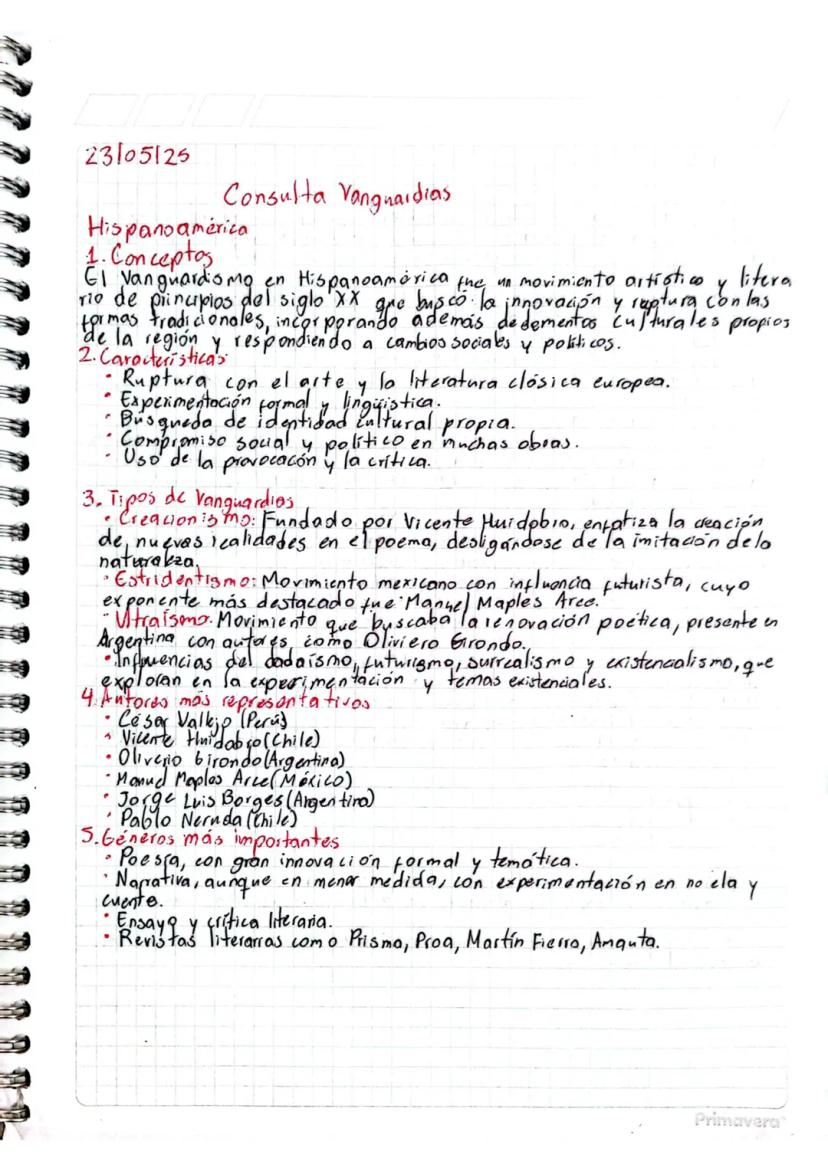 23/05/25
Consulta Vanguardias
Hispanoamérica
1. Conceptos
El Vanguardismo en Hispanoamérica fue un movimiento artístico y litera
rio de principios del siglo XX que buscó la innovación y ruptura con las
formas tradicionales, incorporando además de elementos culturales propios
de la región y respondiendo a cambios sociales y políticos.
2. Características
• Ruptura con el arte y la literatura clásica europea.
• Experimentación formal y lingüística.
• Búsqueda de identidad cultural propia.
• Compromiso social y político en muchas obras.
• Uso de la provocación y la crítica.
3. Tipos de Vanguardias
• Creacionismo: Fundado por Vicente Huidobro, enfatiza la creación
de nuevas realidades en el poema, desligándose de la imitación de la
naturaleza.
• Estridentismo: Movimiento mexicano con influencia futurista, cuyo
exponente más destacado fue Manuel Maples Arce.
• Ultraísmo. Movimiento que buscaba la renovación poética, presente en
Argentina con autores como Oliviero Girondo.
• Influencias del dadaísmo, futurismo, surrealismo y existencialismo, que
exploran en la experimentación y temas existenciales.
4. Autores más representativos
• César Vallejo (Perú)
• Vicente Huidobro (Chile)
• Oliverio Girondo (Argentina)
• Manuel Maples Arce (México)
• Jorge Luis Borges (Argentina)
• Pablo Neruda (Chile)
5. Géneros más importantes
• Poesía, con gran innovación formal y temática.
• Narrativa, aunque en menor medida, con experimentación en no ela y
cuento.
• Ensayo y crítica literaria.
• Revistas literarias como Prisma, Proa, Martín Fierro, Amauta.
Primavera